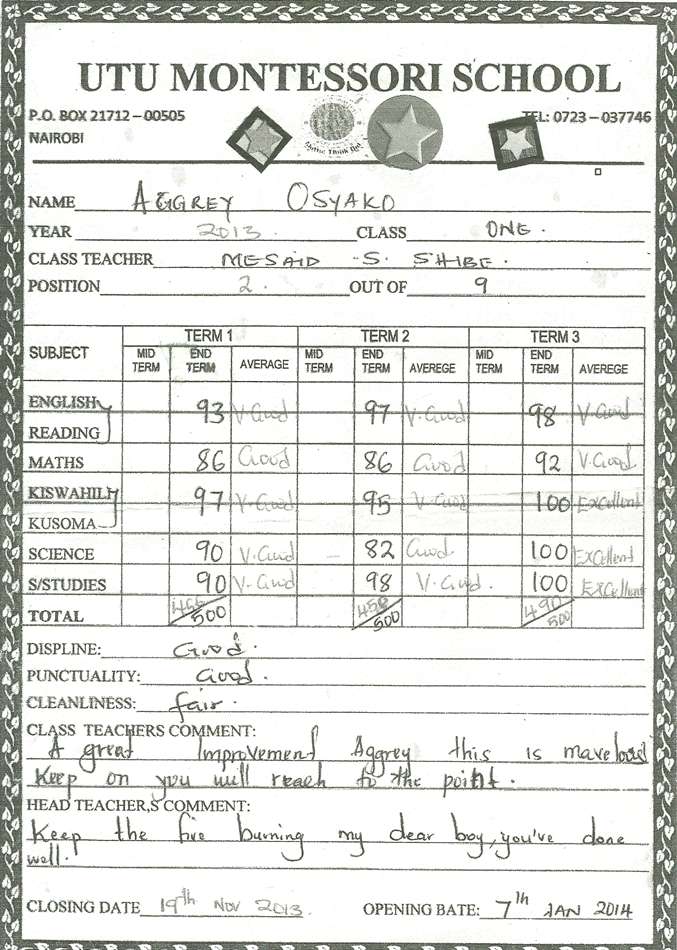 UTU MONTESSORI SCHOOL
P.O. BOX 21712 – 00505 TEL: 0723 – 037746
NAIROBI
NAME AGGREY OSYAKO
YEAR 2013. CLASS ONE.
CLASS TEACHER MESAID .S. SHIBE.
POSITION 2. OUT OF 9
SUBJECT TERM 1 TERM 2 TERM 3
MID TERM END TERM AVERAGE MID TERM END TERM AVEREGE MID TERM END TERM AVEREGE
ENGLISH 93 V.Good 97 V.Good 98 V.Good
READING
MATHS 86 Good 86 Good 92 V.Good
KISWAHILI 97 V.Good 95 V.Good 100 Excellent
KUSOMA
SCIENCE 90 V.Good 82 Good 100 Excellent
S/STUDIES 90 V.Good 98 V.Good. 100 Excellent
TOTAL 456/500 458/500 490/500
DISPLINE: Good.
PUNCTUALITY: Good.
CLEANLINESS: fair.
CLASS TEACHERS COMMENT:
A great Improvement Aggrey this is
Keep on you will reach to the point.
HEAD TEACHER,S COMMENT:
Keep the fire burning my dear boy, you've done
well.
CLOSING DATE 19th Nov 2013. OPENING BATE: 7th JAN 2014